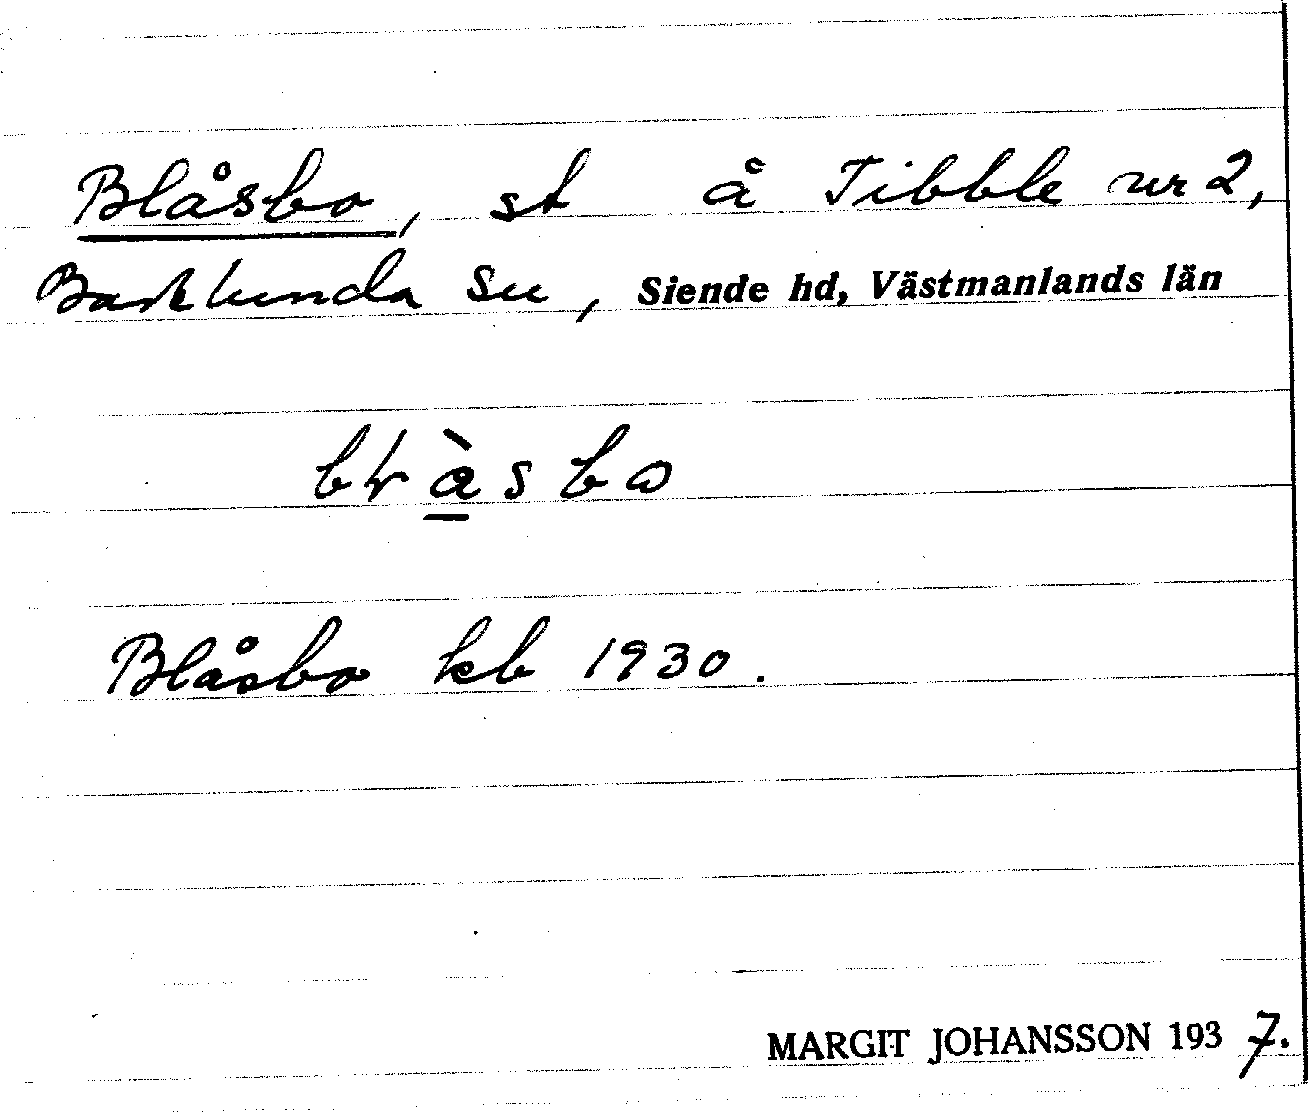 Blåsbo, st å Tibble nr 2,
Barklunda sn, Siende hd, Västmanlands län
Blåsbo kb 1930.
MARGIT JOHANSSON 1937.